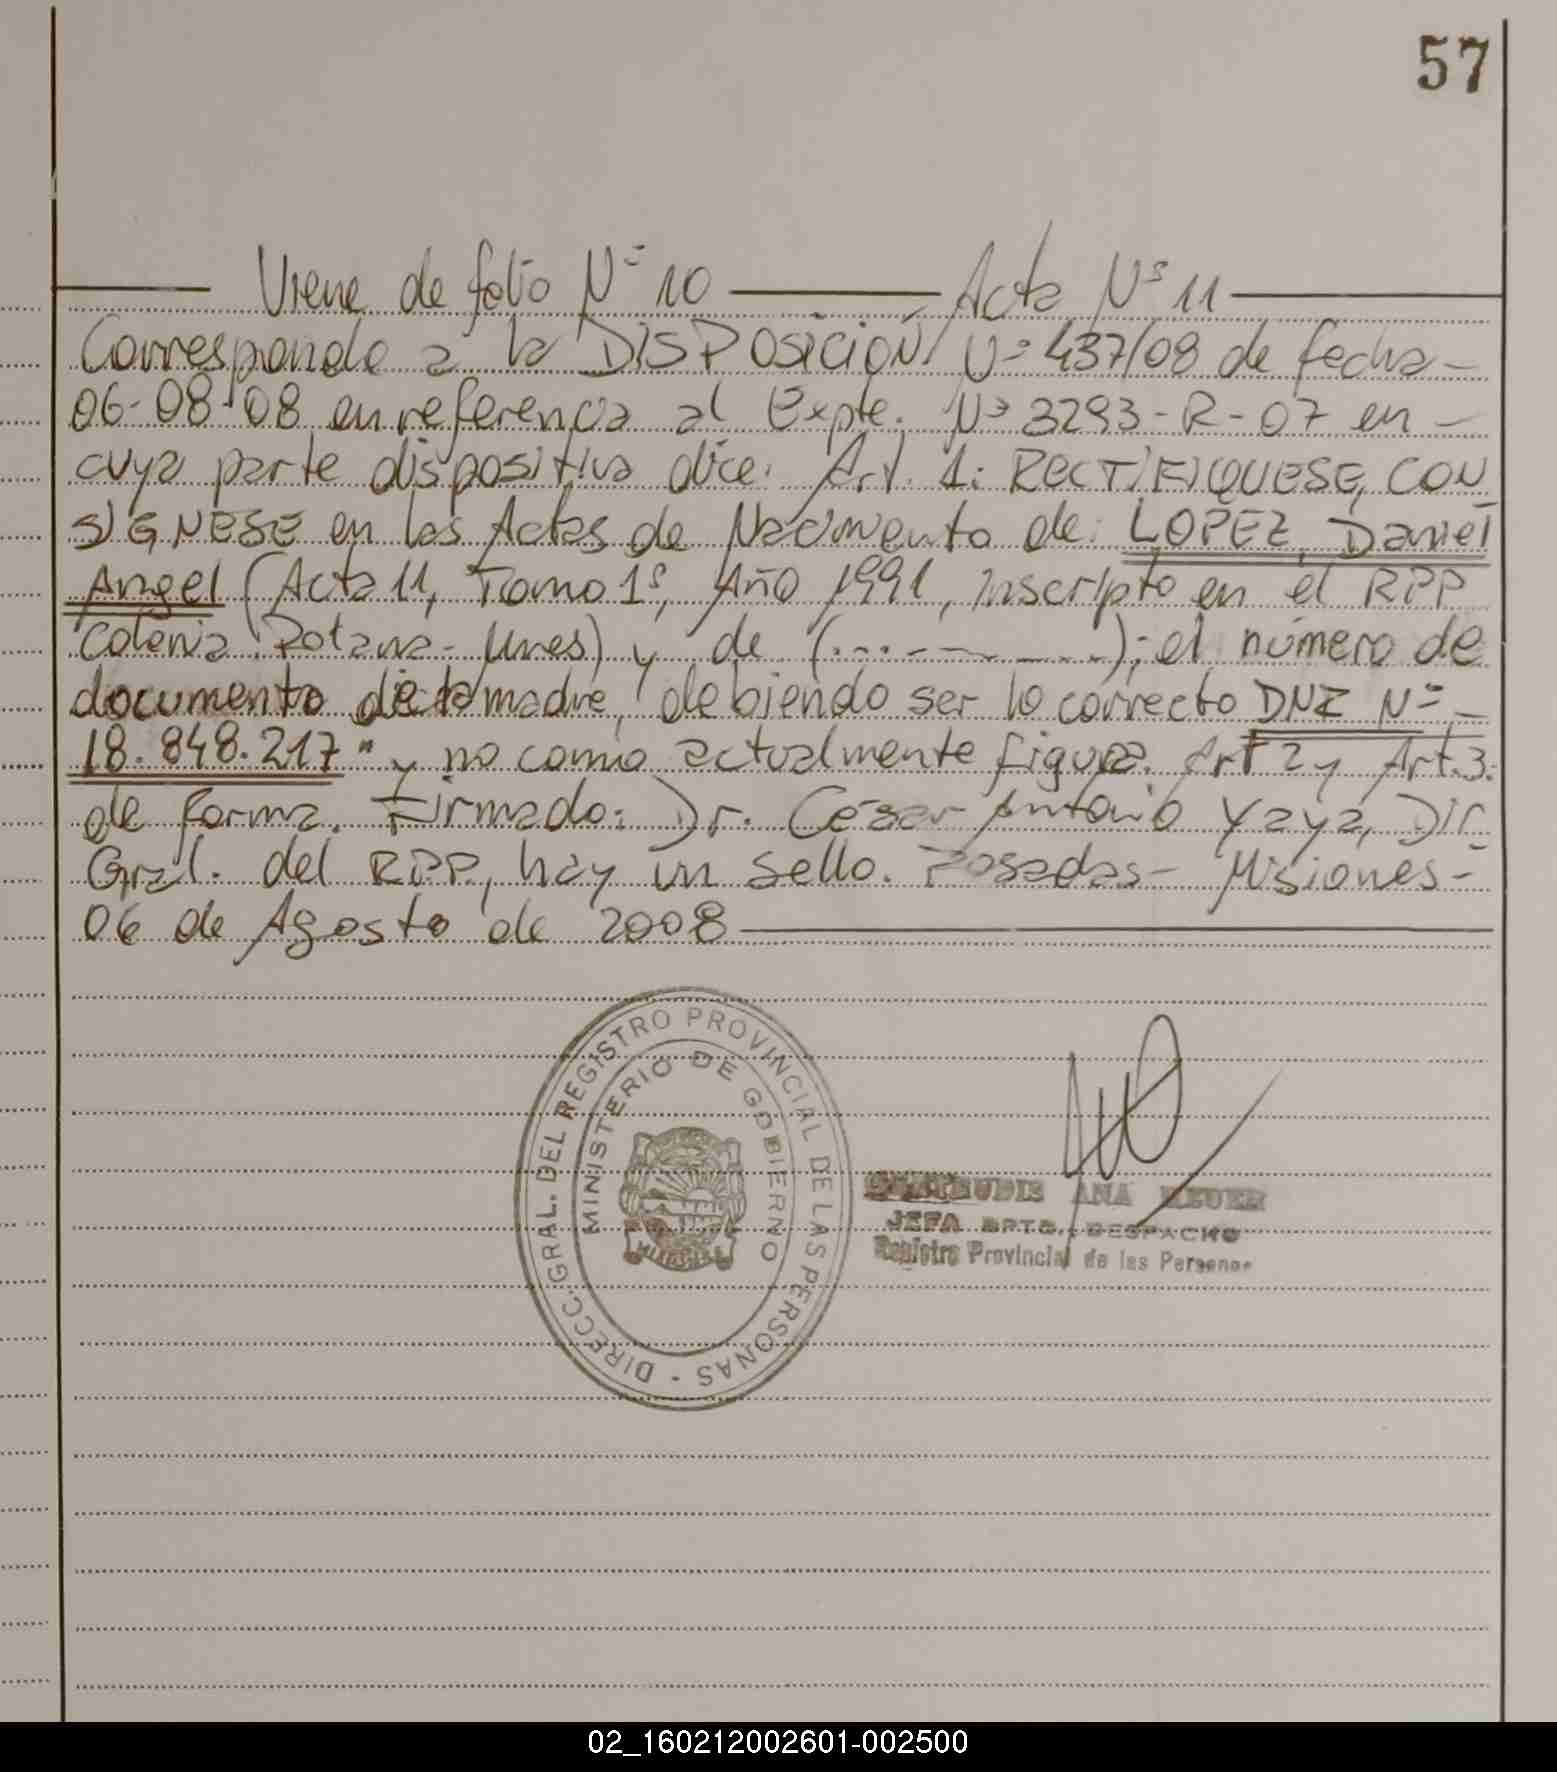 57
Viene de folio Nº 10 Acta Nº 11
Corresponde a la DISPOSICIÓN Nº 437/08 de fecha-
06-08-08 en referencia al Expte. Nº 3293-R-07 en -
cuya parte dispositiva dice: Art. 1: RECTIFIQUESE, CON
SIGNESE en las Actas de Nacimiento de: LOPEZ, Daniel
Angel (Acta 11, Tomo 1º, Año 1991, inscripto en el RPP
Colonia) y de (...---......); el número de
documento de la madre, debiendo ser lo correcto DNI Nº -
18.848.217" y no como actualmente figura. Art 2 y Art. 3.
de forma. Firmado: Dr. César Antonio Yaya, Dir.
Gral. del RPP, hay un sello. Posadas - Misiones -
06 de Agosto de 2008
DIRECC. GRAL. DEL REGISTRO PROVINCIAL DE LAS PERSONAS -
MINISTERIO DE GOBIERNO
MISIONES
GERTRUDIS ANA
JEFA DPTO. DESPACHO
Registro Provincial de las Personas
02_160212002601-002500